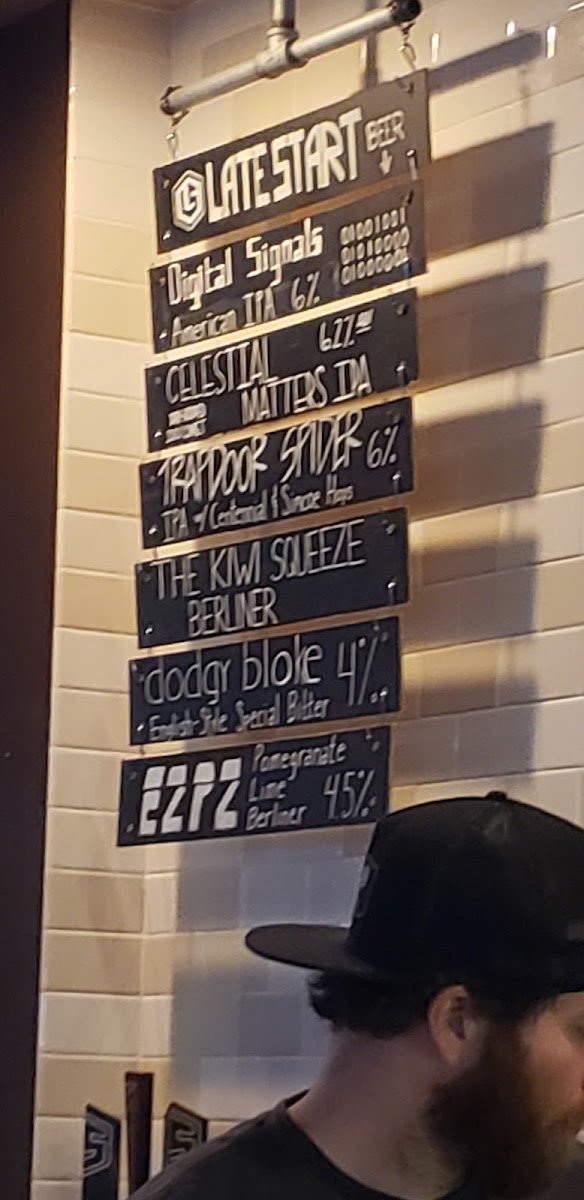 LATE START BEER
Digital Signals 01001001
01010000
01000001
American IPA 6%
CELESTIAL
MATTERS IPA
TRAPDOOR SPIDER 6%
IPA w/ Centennial & Simcoe Hops
THE KIWI SQUEEZE
BERLINER
dodgy bloke 4%
English-Style Special Bitter
EZPZ
Pomegranate
Lime
Berliner 4.5%